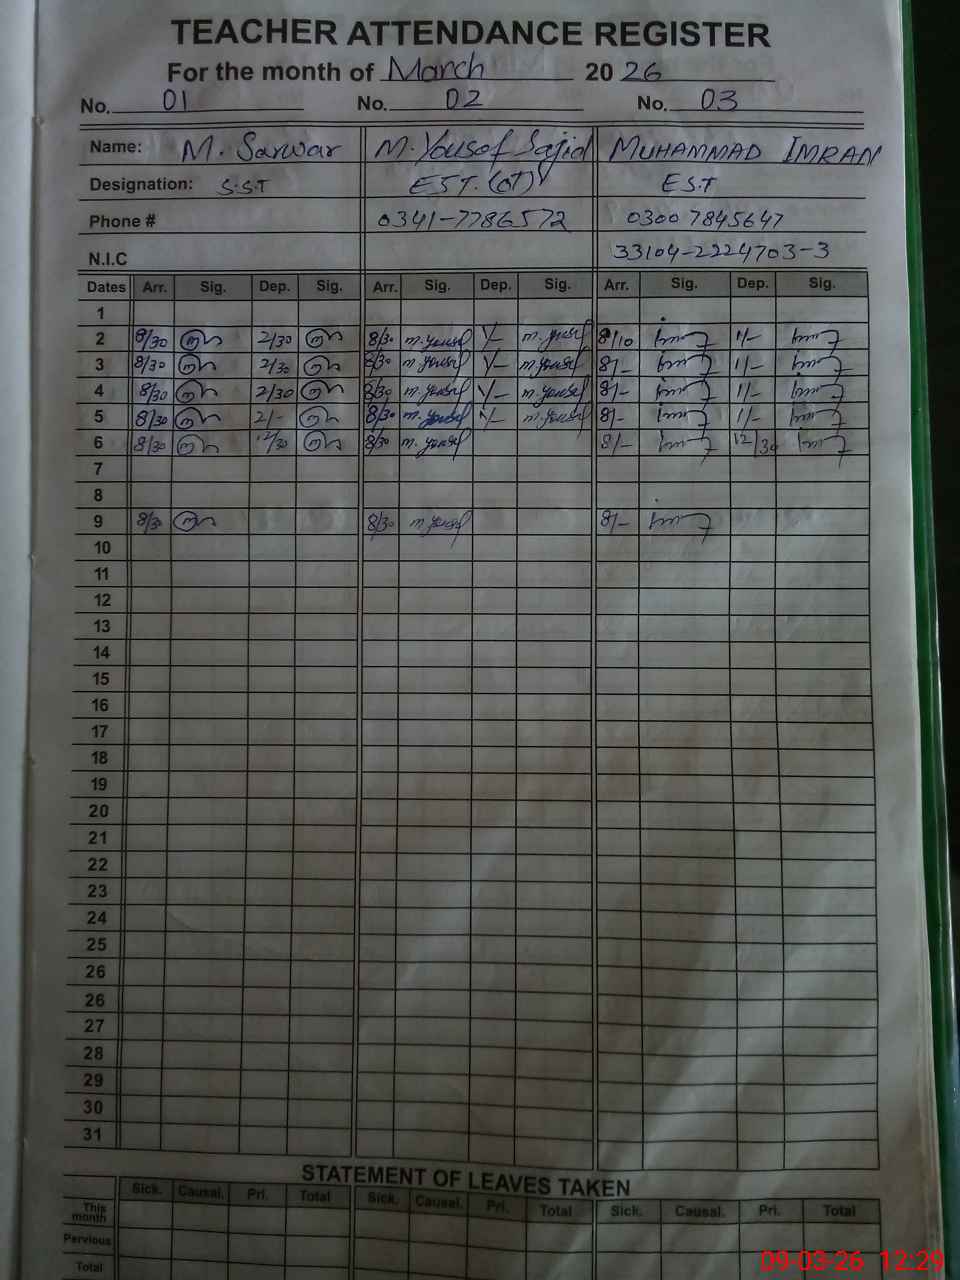 TEACHER ATTENDANCE REGISTER
For the month of March 2026
No. 01 No. 02 No. 03
Name: M. Sarwar M. Yousof Sajid MUHAMMAD IMRAN
Designation: S.S.T EST. (OT) E.S.T
Phone # 0341-7786572 0300 7845647
N.I.C 33104-2224703-3
Dates Arr. Sig. Dep. Sig. Arr. Sig. Dep. Sig. Arr. Sig. Dep. Sig.
1
2 8/30 2/30 8/30 m.yousof 1/- m.yousof 8/10 1/-
3 8/30 2/30 8/30 m.yousof 1/- m.yousof 8/- 1/-
4 8/30 2/30 8/30 m.yousof 1/- m.yousof 8/- 1/-
5 8/30 2/- 8/30 m.yousof 1/- m.yousof 8/- 1/-
6 8/30 12/30 8/30 m.yousof 8/- 12/30
7
8
9 8/30 8/30 m.yousof 8/-
10
11
12
13
14
15
16
17
18
19
20
21
22
23
24
25
26
26
27
28
29
30
31
STATEMENT OF LEAVES TAKEN
Sick. Causal. Pri. Total Sick. Causal. Pri. Total Sick. Causal. Pri. Total
This month
Pervious
Total
09-03-26 12:29